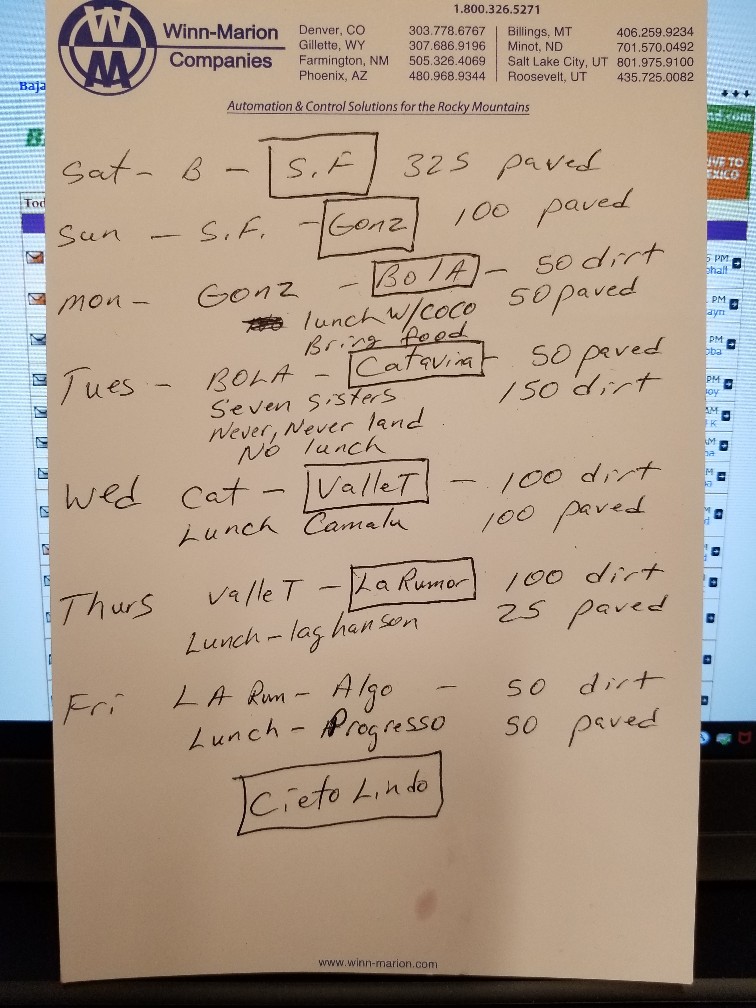 1.800.326.5271
Winn-Marion
Companies
Denver, CO 303.778.6767
Gillette, WY 307.686.9196
Farmington, NM 505.326.4069
Phoenix, AZ 480.968.9344
Billings, MT 406.259.9234
Minot, ND 701.570.0492
Salt Lake City, UT 801.975.9100
Roosevelt, UT 435.725.0082
Automation & Control Solutions for the Rocky Mountains
Baja
Tod
Sat - B - S.F 325 paved
Sun - S.F. - Gonz 100 paved
Mon - Gonz - BolA - 50 dirt
lunch w/coco 50 paved
Bring food
Tues - BOLA - Catavina - 50 paved
Seven sisters 150 dirt
Never, Never land
No lunch
Wed Cat - Valle T - 100 dirt
Lunch Camalu 100 paved
Thurs Valle T - La Rumor 100 dirt
Lunch - lag hanson 25 paved
Fri LA Rum - Algo - 50 dirt
Lunch - Progresso 50 paved
Cieto Lindo
www.winn-marion.com